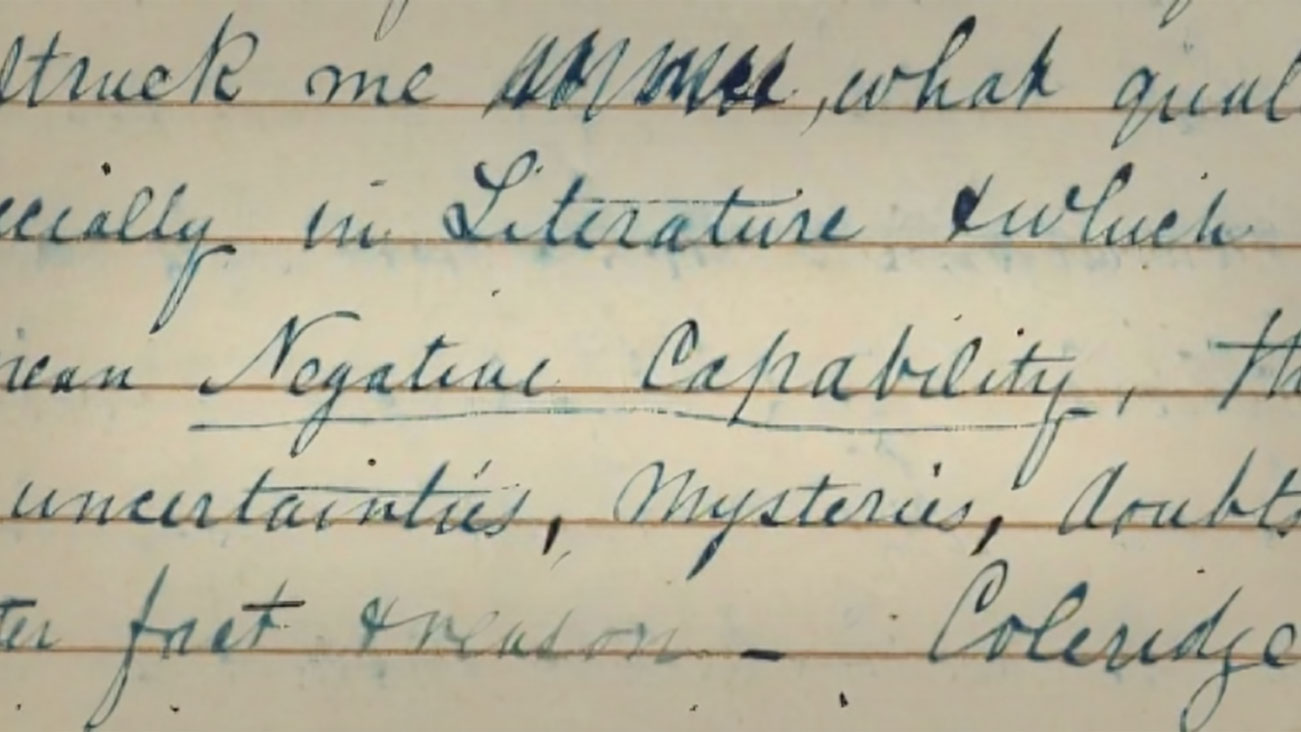 struck me , what qual
cially in Literature & which
mean Negative Capability, th
uncertainties, Mysteries, doubts
ter fact & reason – Coleridge